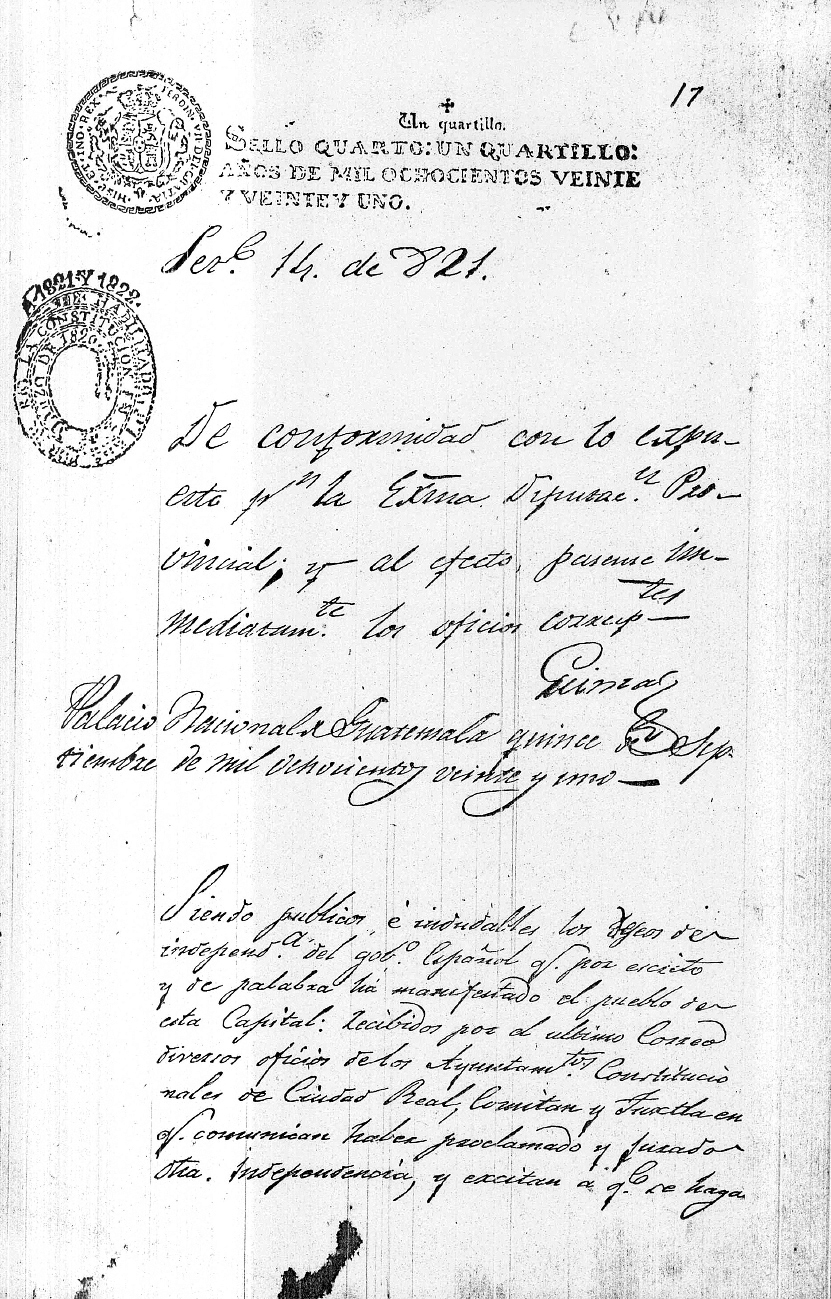 17
HISP.ET IND.REX. FERDIN.VII.DEI.GRATIA.
Un quartillo.
SELLO QUARTO: UN QUARTILLO:
AÑOS DE MIL OCHOCIENTOS VEINTE
Y VEINTE Y UNO.
1821 Y 1822.
HABILITADO
LA CONSTITUCION EN
MARZO DE 1820.
14. de 821.
De conformidad con lo expu-
esto pr la Exma. Diputac.n Pro-
vincial; y al efecto, pasense im-
mediatam.te los oficios corresp.tes
Palacio Nacional de Guatemala quince de Sep-
tiembre de mil ochocientos veinte y uno
Siendo publicos, é indudables los deseos de
independ.a del gob.o Español q. por escrito
y de palabra há manifestado el pueblo de
esta Capital: Recibidos por el ultimo Correo
diversos oficios de los Ayuntam.tos Constitucio
nales de Ciudad Real, Comitan y Tuxtla en
q. comunican haber proclamado y jurado
dha. independencia, y excitan a q.e se haga